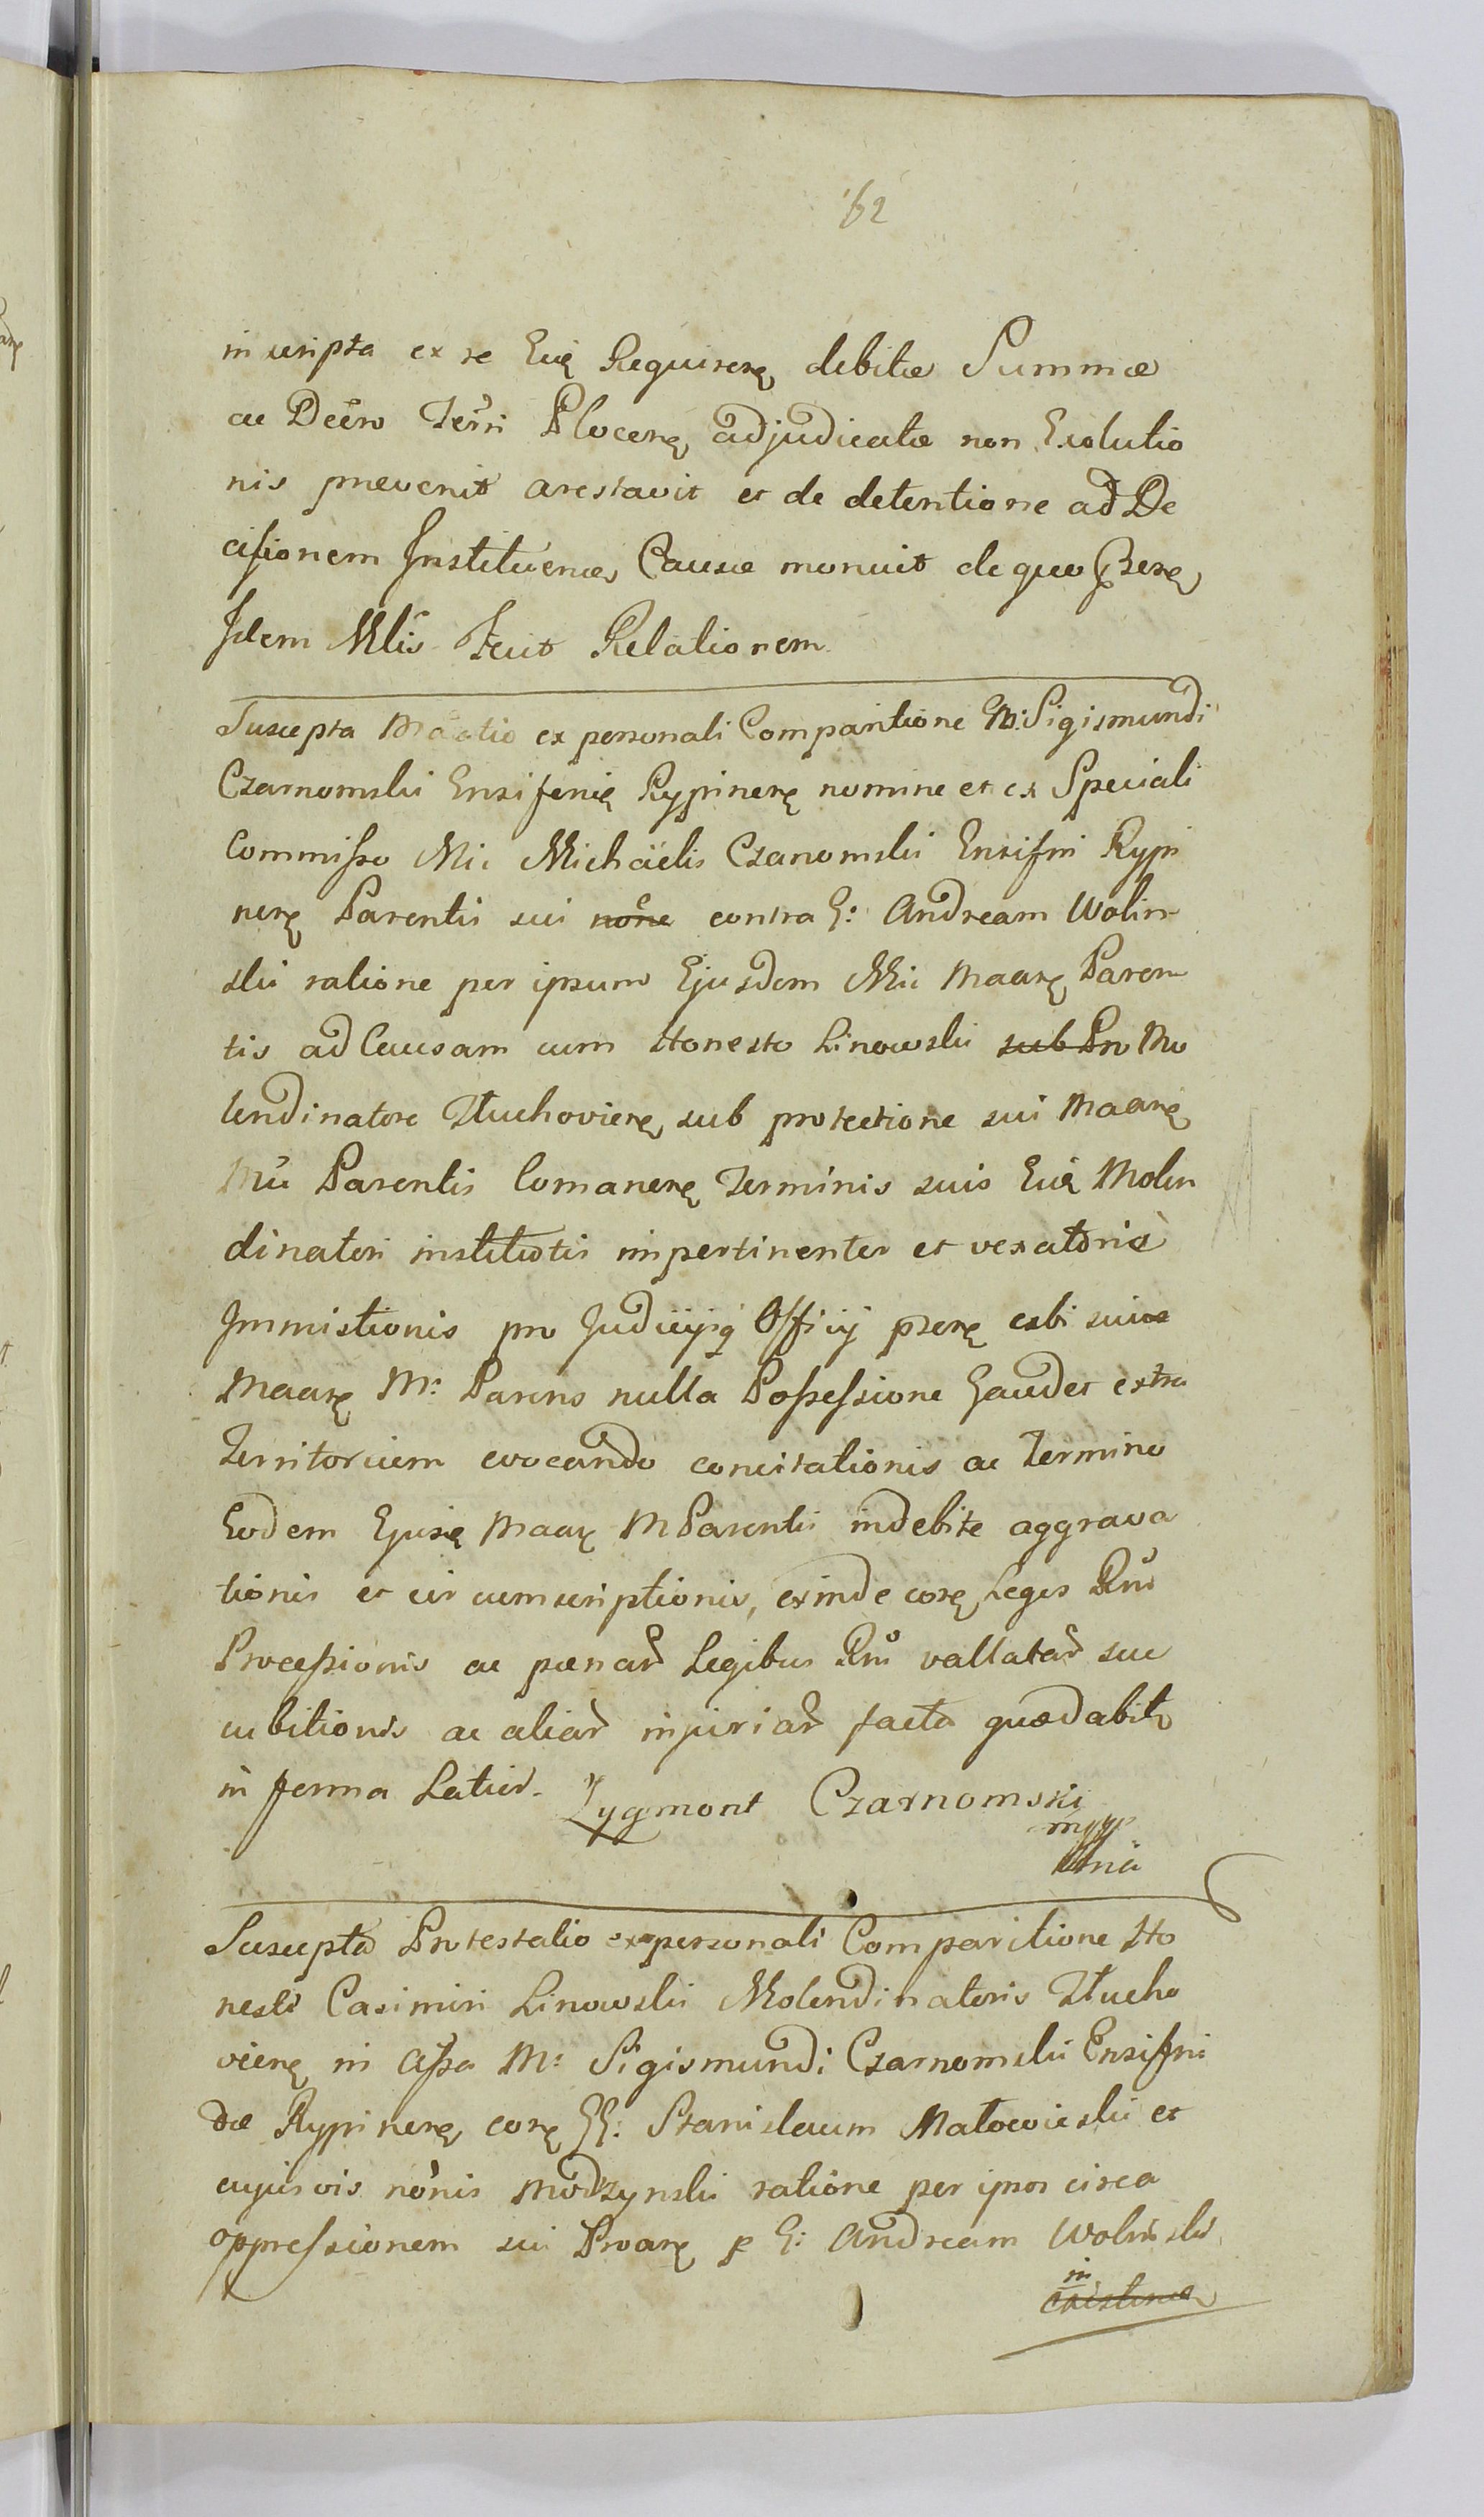 62
inscripta ex re Eius Requirerę debitæ Summæ
ac Decro Terri Plocenę adjudicatæ non Exolutio
nis prævenit arestavit et de detentione ad De
cisionem Instituenæ Causæ monuit de quo Pserę
Idem Mlis Fecit Relationem
Suscepta Maatio ex personali Comparitione M: Sigismundi
Czarnomskii Ensiferię Rypinenę nomine et ex Speciali
Commisso Mi: Michäelis Czanomskii Ensifri Rypi
nenę Parentis sui none contra G: Andream Wolin
skii ratione per ipsum Ejusdem Mii Maarę Paren
tis ad Causam cum Honesto Linowskii sub Pro Mo
lendinatore Tłuchovienę sub protectione sui Maarę
Mii Parentis Comanenę Terminis suis Eię Molen
dinatori institutis impertinenter et vexatoriè
Immistionis pro Judicijsq Officij pserę ubi suus
Maarę M: Parens nulla Possessione Gaudet extra
Territorium evocando concitationis ac Termino
Eodem Ejusę Maarę M Parentis indebite aggrava
tionis et circumscriptionis, exinde corę Leges Rni
Processionis ac pænar Legibus Rni vallatar suc
cubitionis ac aliar injuriar facta quædabitę
in forma Latiori. Zygmont Czarnomski
mpp
Suscepta Protestatio ex personali Comparitione Ho
nesti Casimiri Linowskii Molendinatoris Tłucho
vienę in Assa M: Sigismundi Czarnomskii Ensifri
dæ Rypinenę corę GG: Stanislaum Małowieskii et
cujusvis nonis Modzynskii ratione per ipsos circa
oppressionem sui Proarę p G: Andream Wolinskii
in
existenę